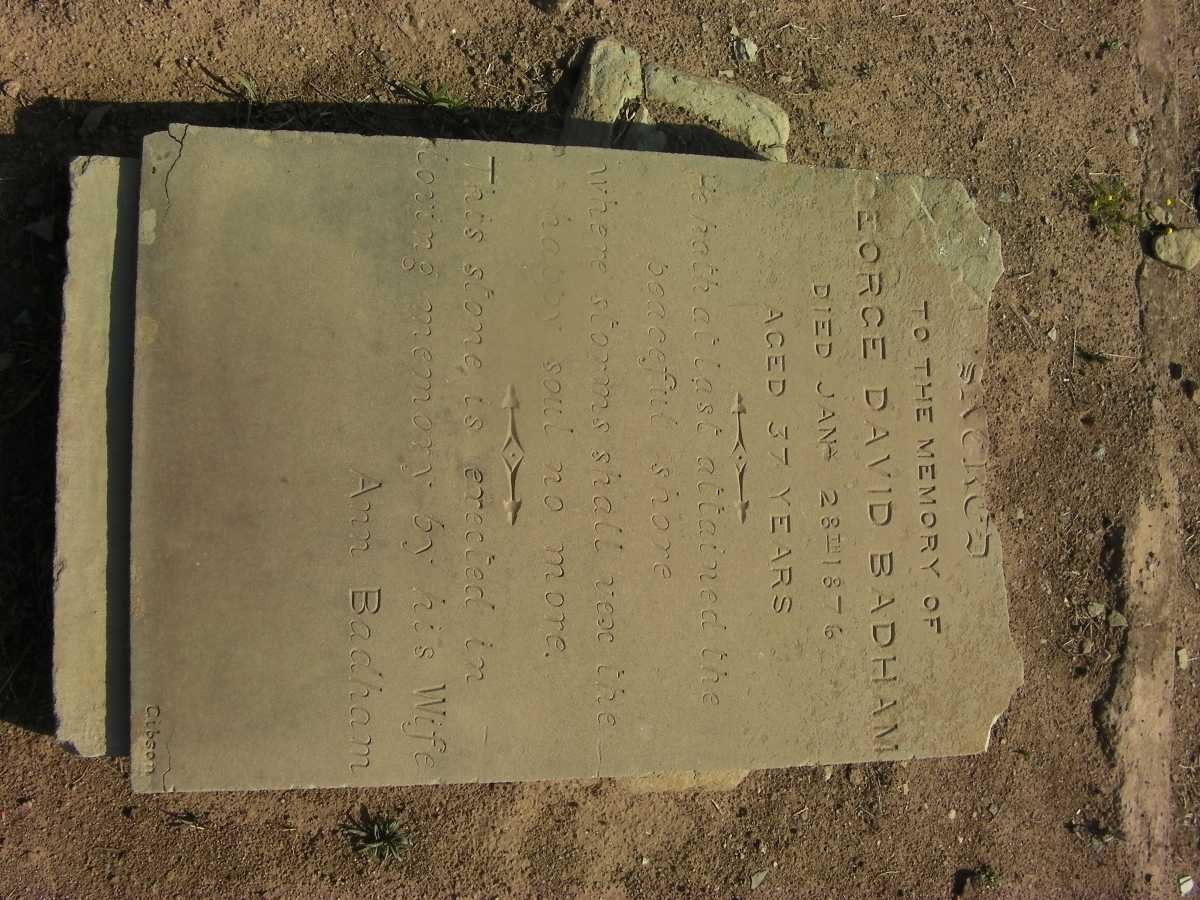 SACRED
TO THE MEMORY OF
EORGE DAVID BADHAM
DIED JANY 28TH 1876
AGED 37 YEARS
He hath at last attained the
peaceful shore
Where storms shall vex the
happy soul no more.
This stone is erected in
loving memory by his Wife
Ann Badham
Gibson